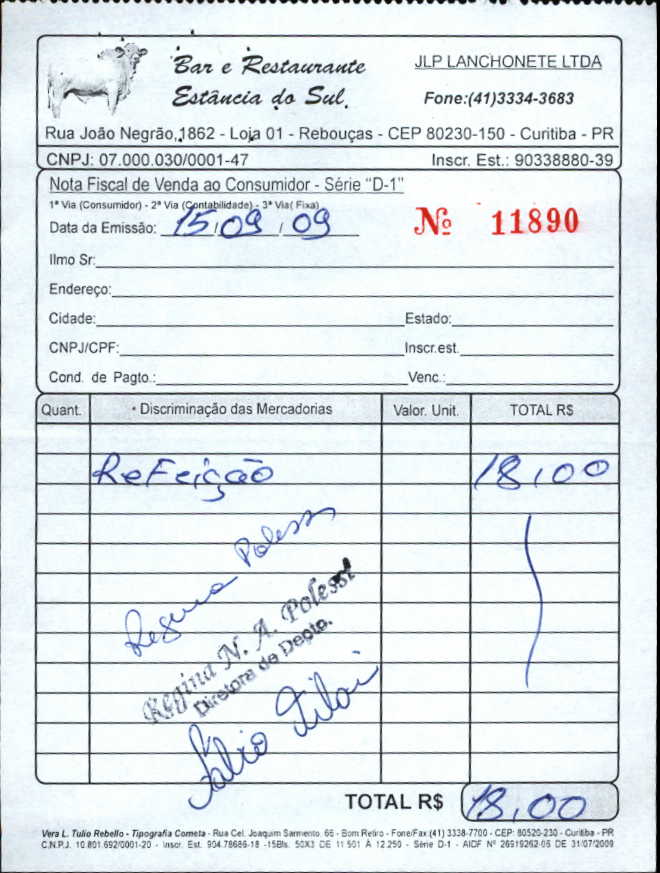 Bar e Restaurante
Estância do Sul
JLP LANCHONETE LTDA
Fone:(41)3334-3683
Rua João Negrão,1862 - Loja 01 - Rebouças - CEP 80230-150 - Curitiba - PR
CNPJ: 07.000.030/0001-47 Inscr. Est.: 90338880-39
Nota Fiscal de Venda ao Consumidor - Série "D-1"
1ª Via (Consumidor) - 2ª Via (Contabilidade) - 3ª Via( Fixa)
Data da Emissão: 15/09/09 Nº 11890
Ilmo Sr:
Endereço:
Cidade: Estado:
CNPJ/CPF: Inscr.est.
Cond. de Pagto.: Venc.:
Quant. Discriminação das Mercadorias Valor. Unit. TOTAL R$
ReFeição 18,00
Regina Polessi
Regina N. A. Polessi
Diretora de Depto.
TOTAL R$ 18,00
Vera L. Tulio Rebello - Tipografia Cometa - Rua Cel. Joaquim Sarmento, 66 - Bom Retiro - Fone/Fax:(41) 3338-7700 - CEP: 80520-230 - Curitiba - PR
C.N.P.J. 10.801.692/0001-20 - Inscr. Est. 904.78686-18 -15Bls. 50X3 DE 11.501 À 12.250 - Série D-1 - AIDF Nº 26919262-06 DE 31/07/2009